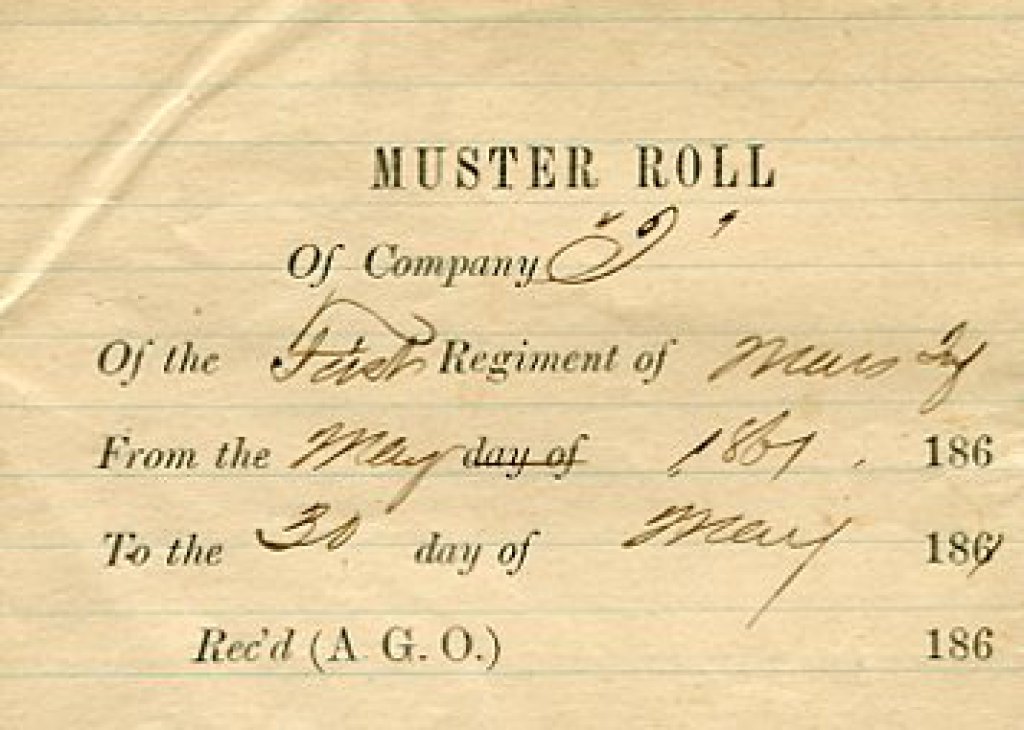 MUSTER ROLL
Of Company
Of the First Regiment of
From the May day of 1861. 186
To the 30 day of May 1861
Rec'd (A. G. O.) 186